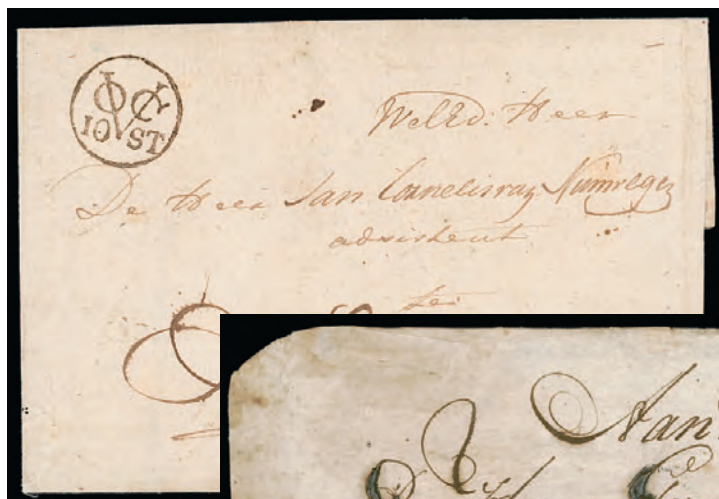 VOC
10 ST
WelEd: Heer
De Heer Jan Cornelis van Nimwegen
adsistent
te:
Aan